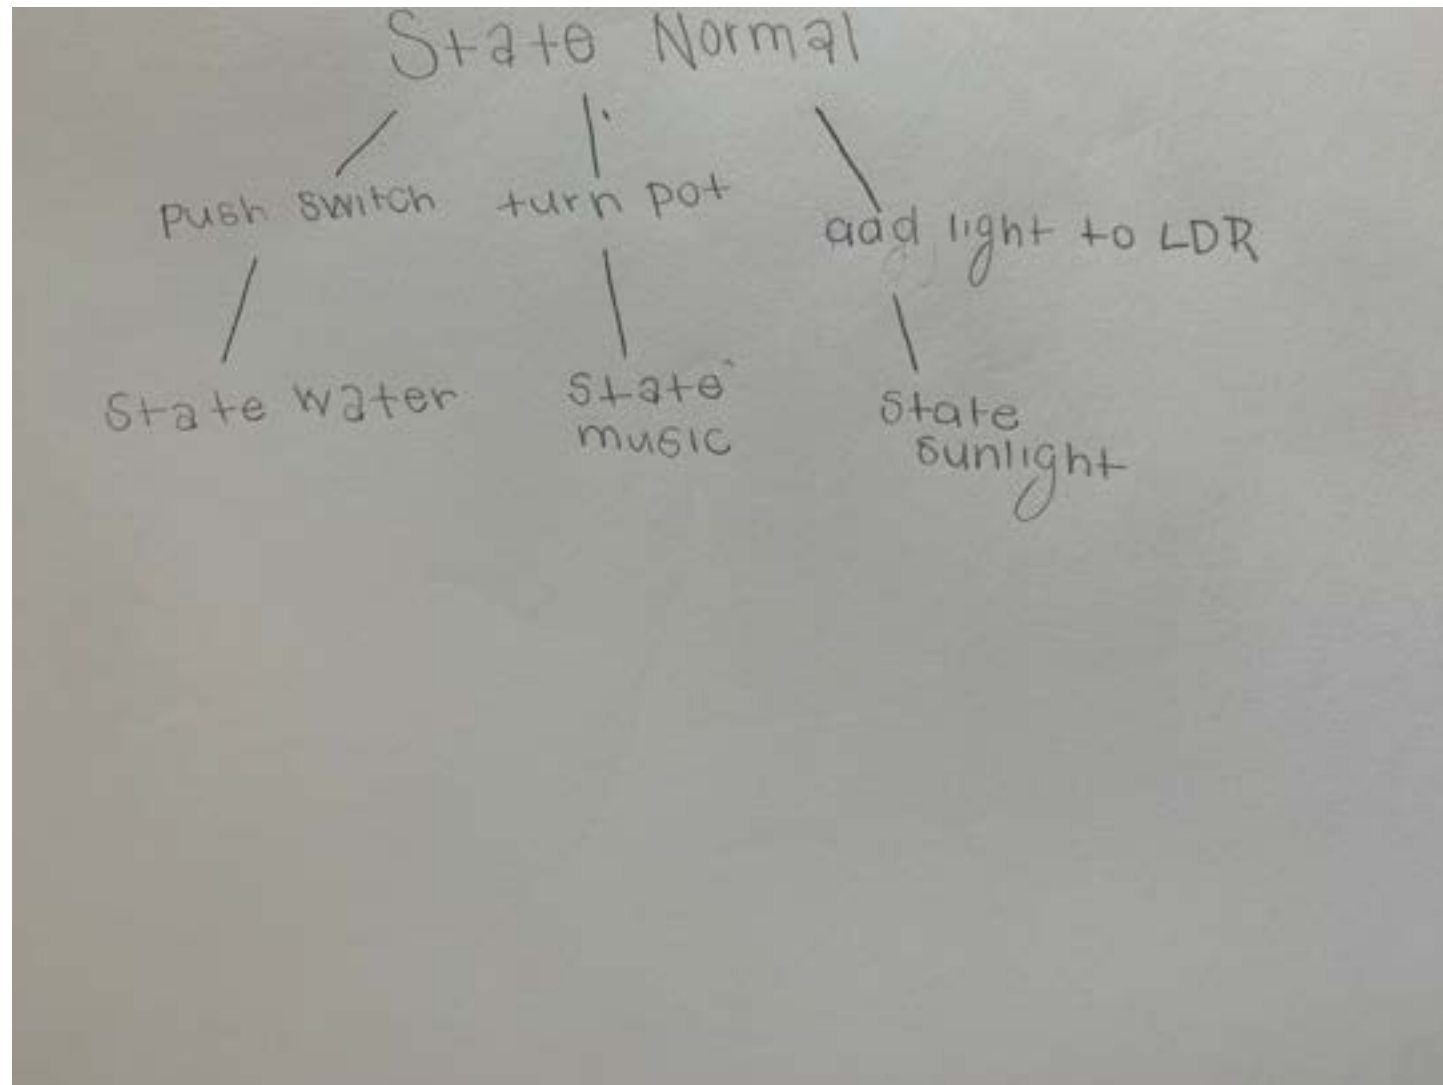 State Normal
push switch turn pot add light to LDR
State water state state
music sunlight